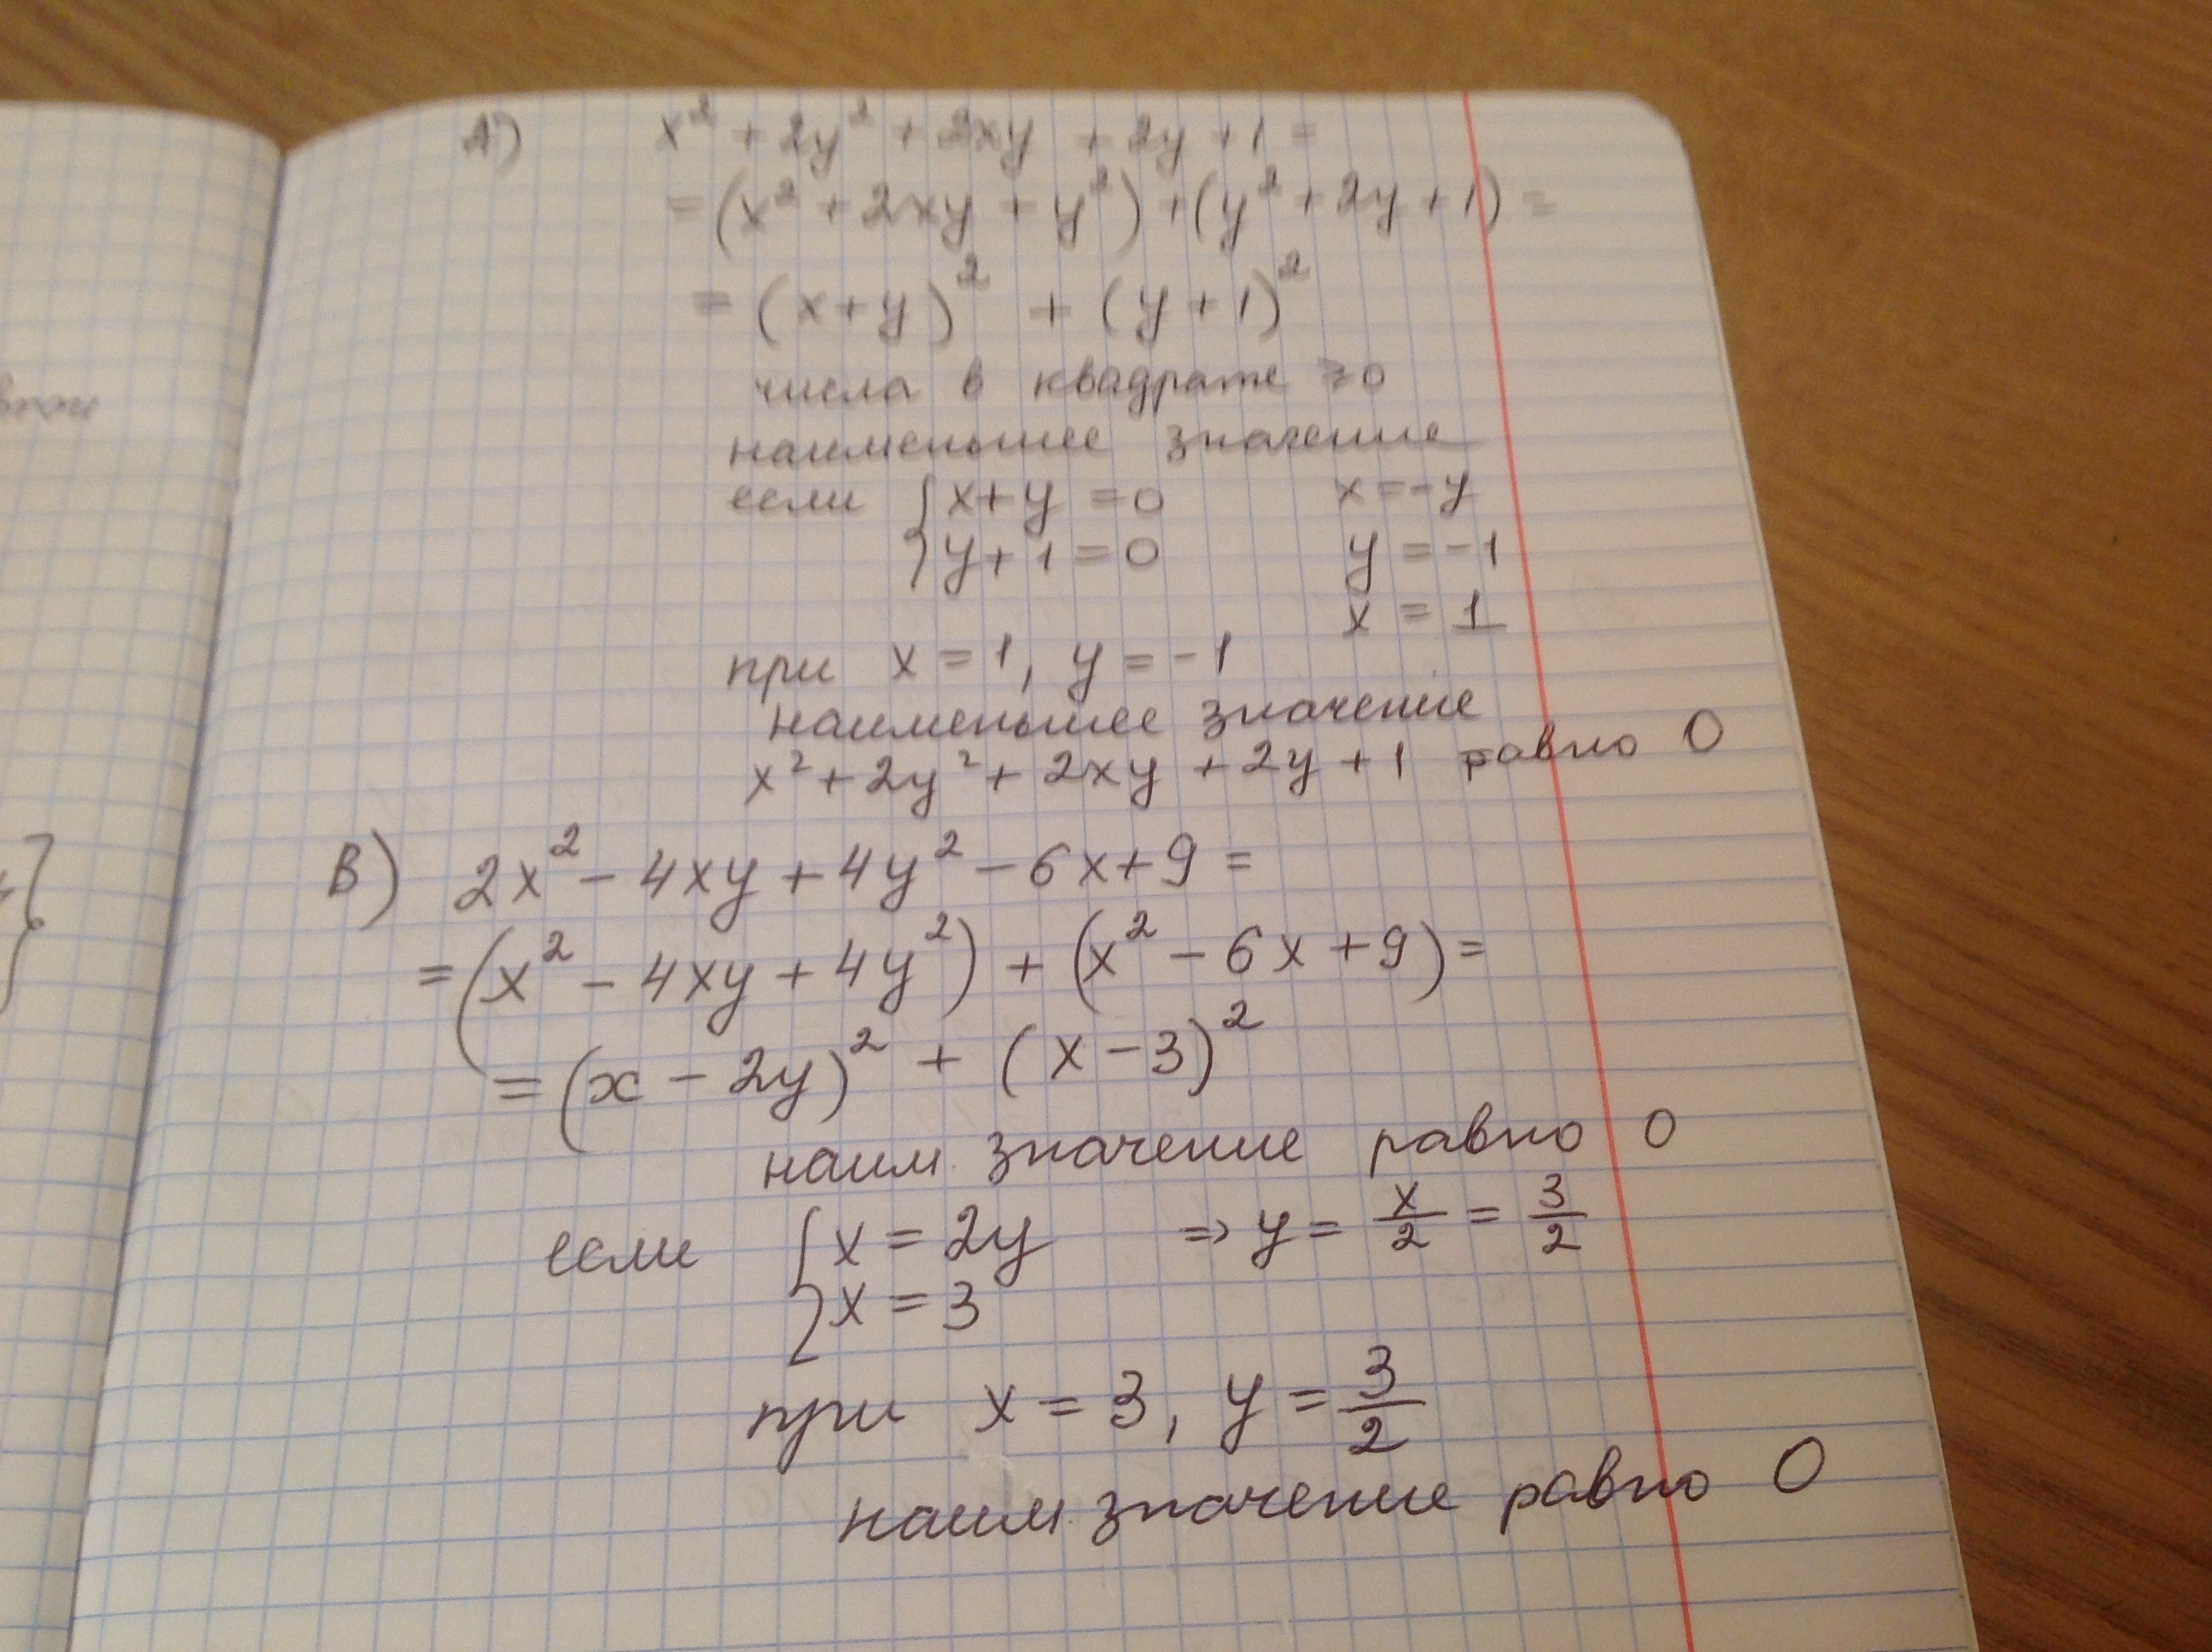 А) x² + 2y² + 2xy + 2y + 1 =
= (x² + 2xy + y²) + (y² + 2y + 1) =
= (x+y)² + (y+1)²
числа в квадрате ⩾0
наименьшее значение
если { x+y = 0 x = -y
y+1 = 0 y = -1
x = 1
при x = 1, y = -1
наименьшее значение
x² + 2y² + 2xy + 2y + 1 равно 0
В) 2x² - 4xy + 4y² - 6x + 9 =
= (x² - 4xy + 4y²) + (x² - 6x + 9) =
= (x - 2y)² + (x - 3)²
наим. значение равно 0
если { x = 2y => y = x/2 = 3/2
x = 3
при x = 3, y = 3/2
наим. значение равно 0